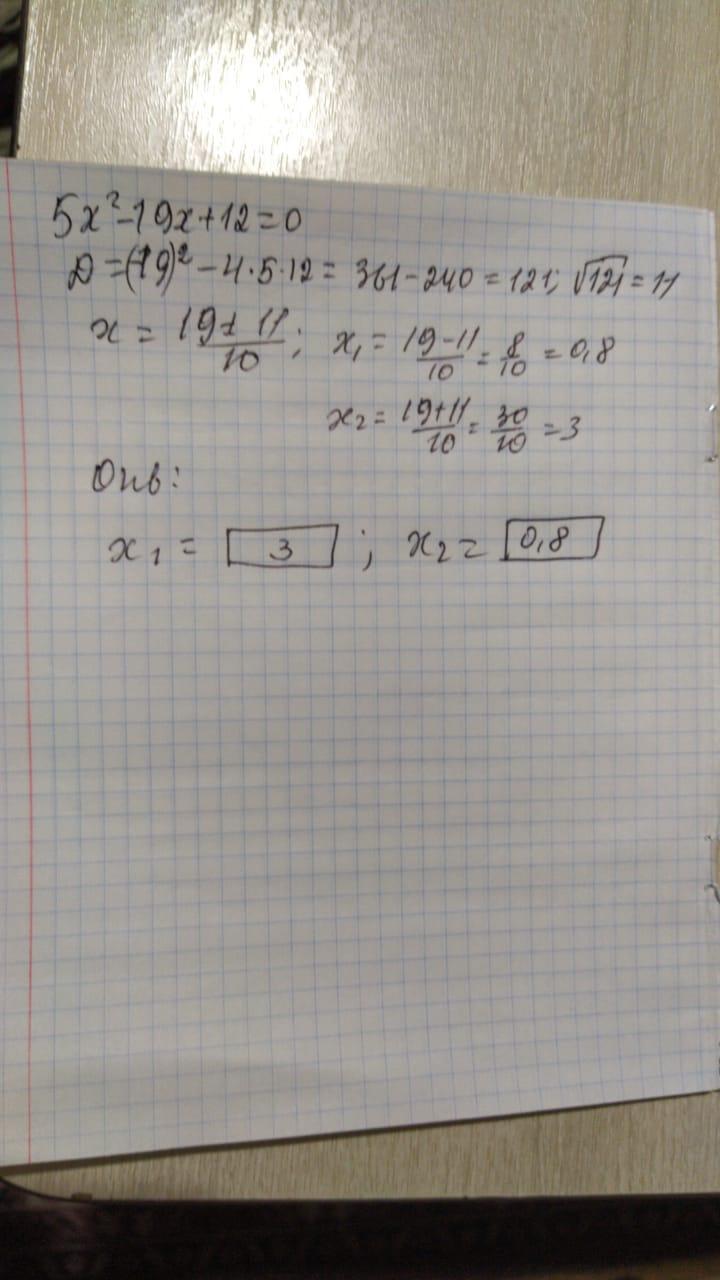 5x²-19x+12=0
D=(-19)²-4·5·12=361-240=121; √121=11
x=(19±11)/10; x₁=(19-11)/10=8/10=0,8
x₂=(19+11)/10=30/10=3
Отв:
x₁= 3 ; x₂= 0,8